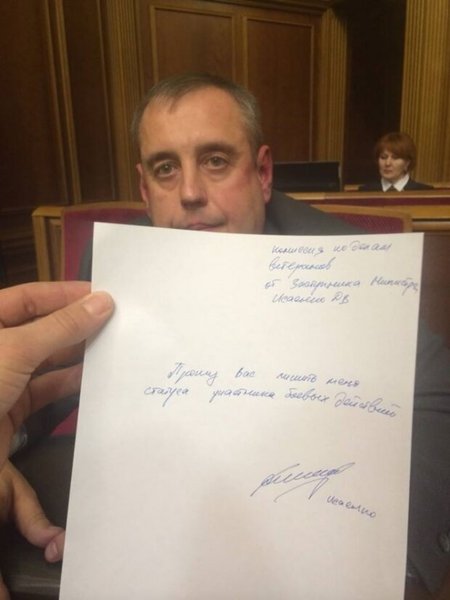 комиссия по делам
ветеранов
от Заступника Министра
Исаенко ДВ
Прошу Вас лишить меня
статуса участника боевых действий
Исаенко